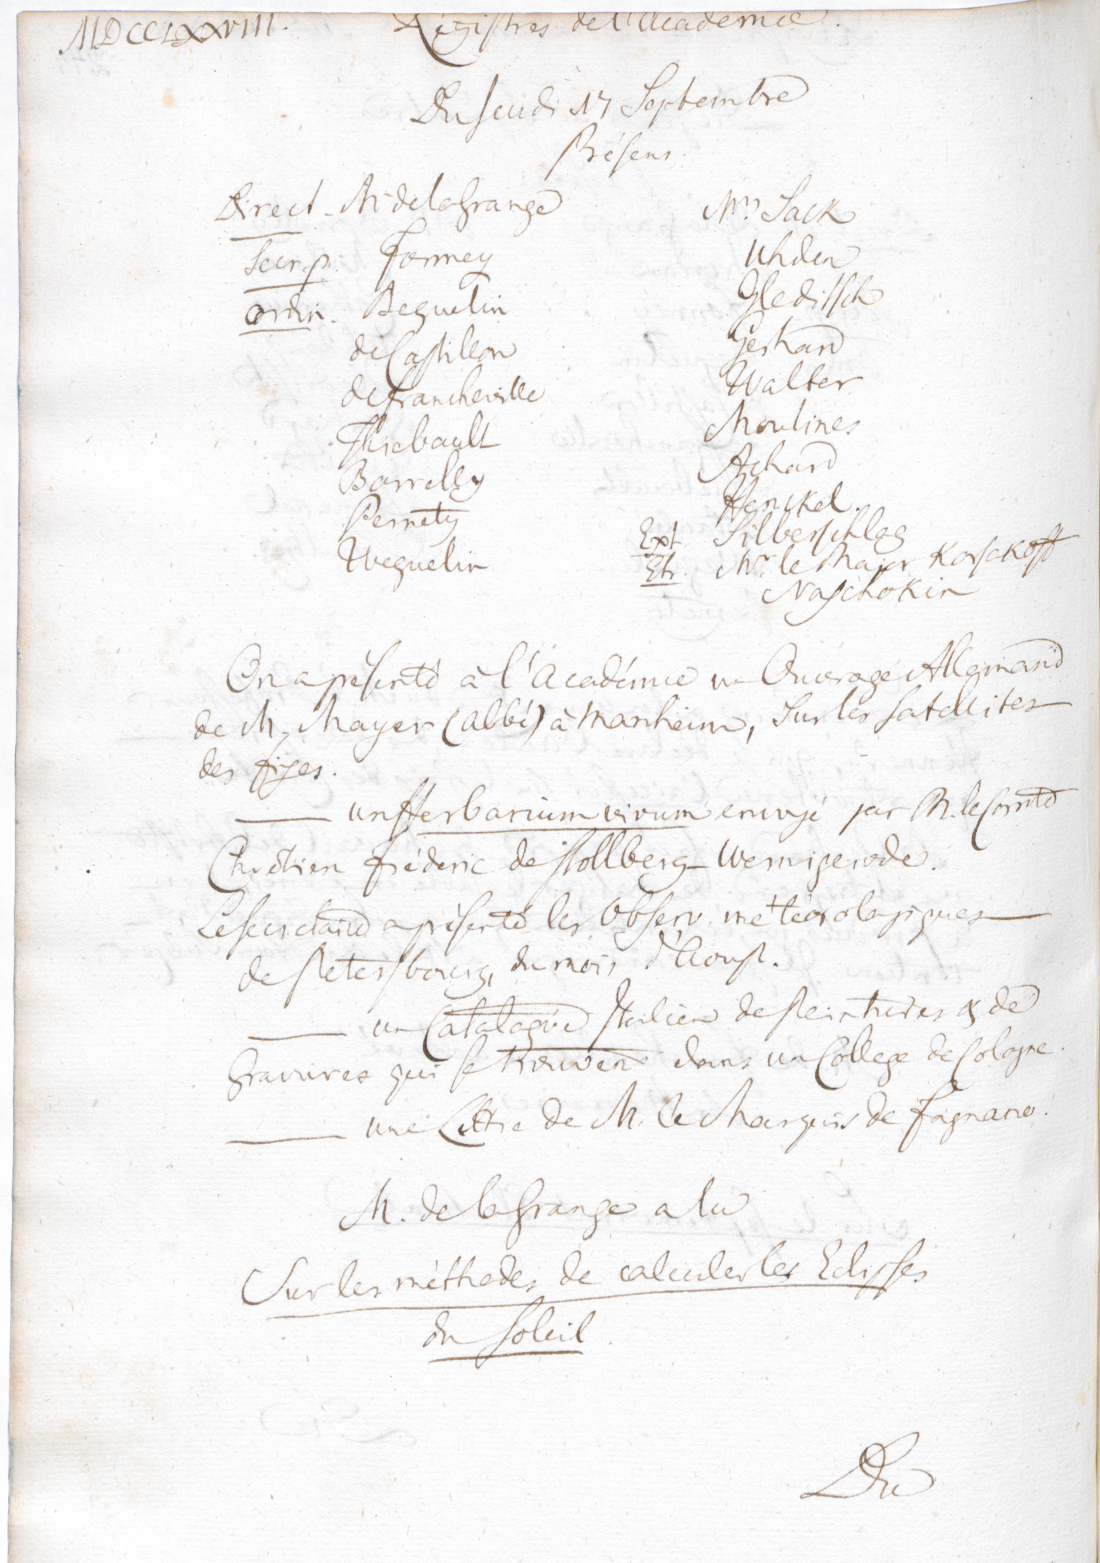 MDCCLXXVIII.
Registres de l'Academie.
Du Jeudi 17 Septembre
Présens.
Direct. Mr de la Grange
Secr. p. Formey
ordin. Beguelin
de Castillon
de Francheville
Thiebault
Borrelly
Pernety
Weguelin
Mrs Sack
Uhden
Gleditsch
Gerhard
Walter
Moulines
Achard
Henckel.
Ext. Silberschlag
Etr. Mr. le Major Korsakoff
Naschokin
On a présenté à l'Académie un Ouvrage Allemand
de M. Mayer (Abbé) à Manheim, sur les Satellites
des fixes.
——— un Herbarium vivum envoyé par M. le Comte
Chrétien Fréderic de Stollberg-Wernigerode.
Le Secretaire a présenté les Observ. météorologiques
de Petersbourg, du mois d'Aoust.
——— un Catalogue Italien de Peintures & de
Gravures qui se trouvent dans un College de Cologne.
——— une Lettre de M. le Marquis de Fagnano.
M. de la Grange a lu
Sur les méthodes de calculer les Eclipses
du Soleil.
Du